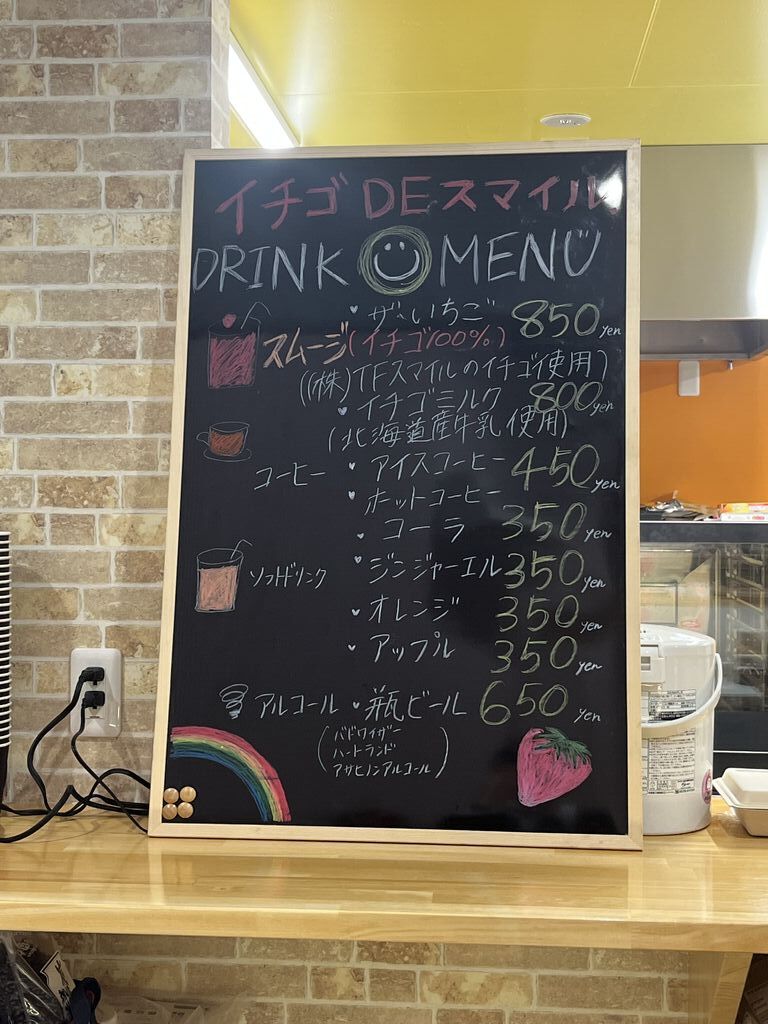 イチゴDEスマイル
DRINK MENU
・ザ・いちご 850yen
スムージ(イチゴ100%)
((株)TFスマイルのイチゴ使用)
・イチゴミルク 800yen
(北海道産牛乳使用)
コーヒー ・アイスコーヒー 450yen
・ホットコーヒー
・コーラ 350yen
ソフトドリンク ・ジンジャーエル 350yen
・オレンジ 350yen
・アップル 350yen
アルコール・瓶ビール 650yen
(バドワイザー
ハートランド
アサヒノンアルコール)